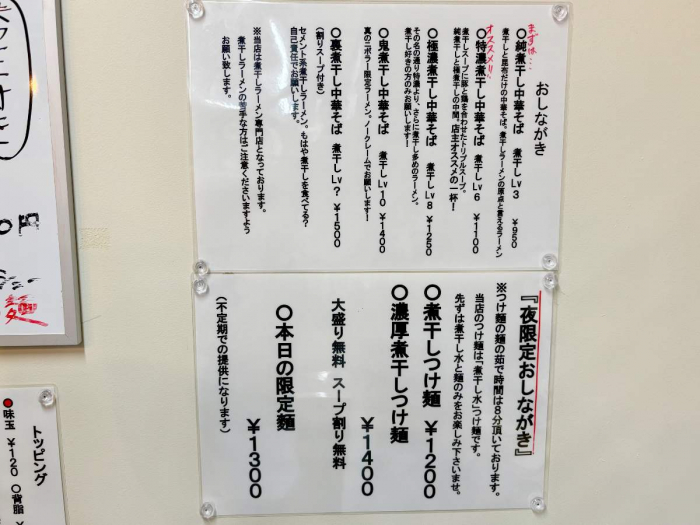 おしながき
まずは…
○純煮干し中華そば 煮干しLv3 ¥950
煮干しと昆布だけの中華そば。煮干しラーメンの原点と言えるラーメン
オススメ!!
○特濃煮干し中華そば 煮干しLv6 ¥1100
煮干しスープに豚と鶏を合わせたトリプルスープ。
純煮干しと極煮干しの中間。店主オススメの一杯!
○極濃煮干し中華そば 煮干しLv8 ¥1250
その名の通り特濃より、さらに煮干し多めのラーメン。
煮干し好きの方のみお願いします!
○鬼煮干し中華そば 煮干しLv10 ¥1400
真のニボラー限定ラーメン。ノークレームでお願いします!
○裏煮干し中華そば 煮干しLv? ¥1500
(割りスープ付き)
セメント系煮干しラーメン。もはや煮干しを食べてる?
自己責任でお願いします。
※当店は煮干しラーメン専門店となっております。
煮干しラーメンの苦手な方はご注意くださいますよう
お願い致します。
『夜限定おしながき』
※つけ麺の麺の茹で時間は8分頂いております。
当店のつけ麺は「煮干し水」つけ麺です。
先ずは煮干し水と麺のみをお楽しみ下さいませ。
○煮干しつけ麺 ¥1200
○濃厚煮干しつけ麺 ¥1400
大盛り無料 スープ割り無料
○本日の限定麺 ¥1300
(不定期での提供になります)
0円
麺
トッピング
●味玉 ¥120 ○背脂